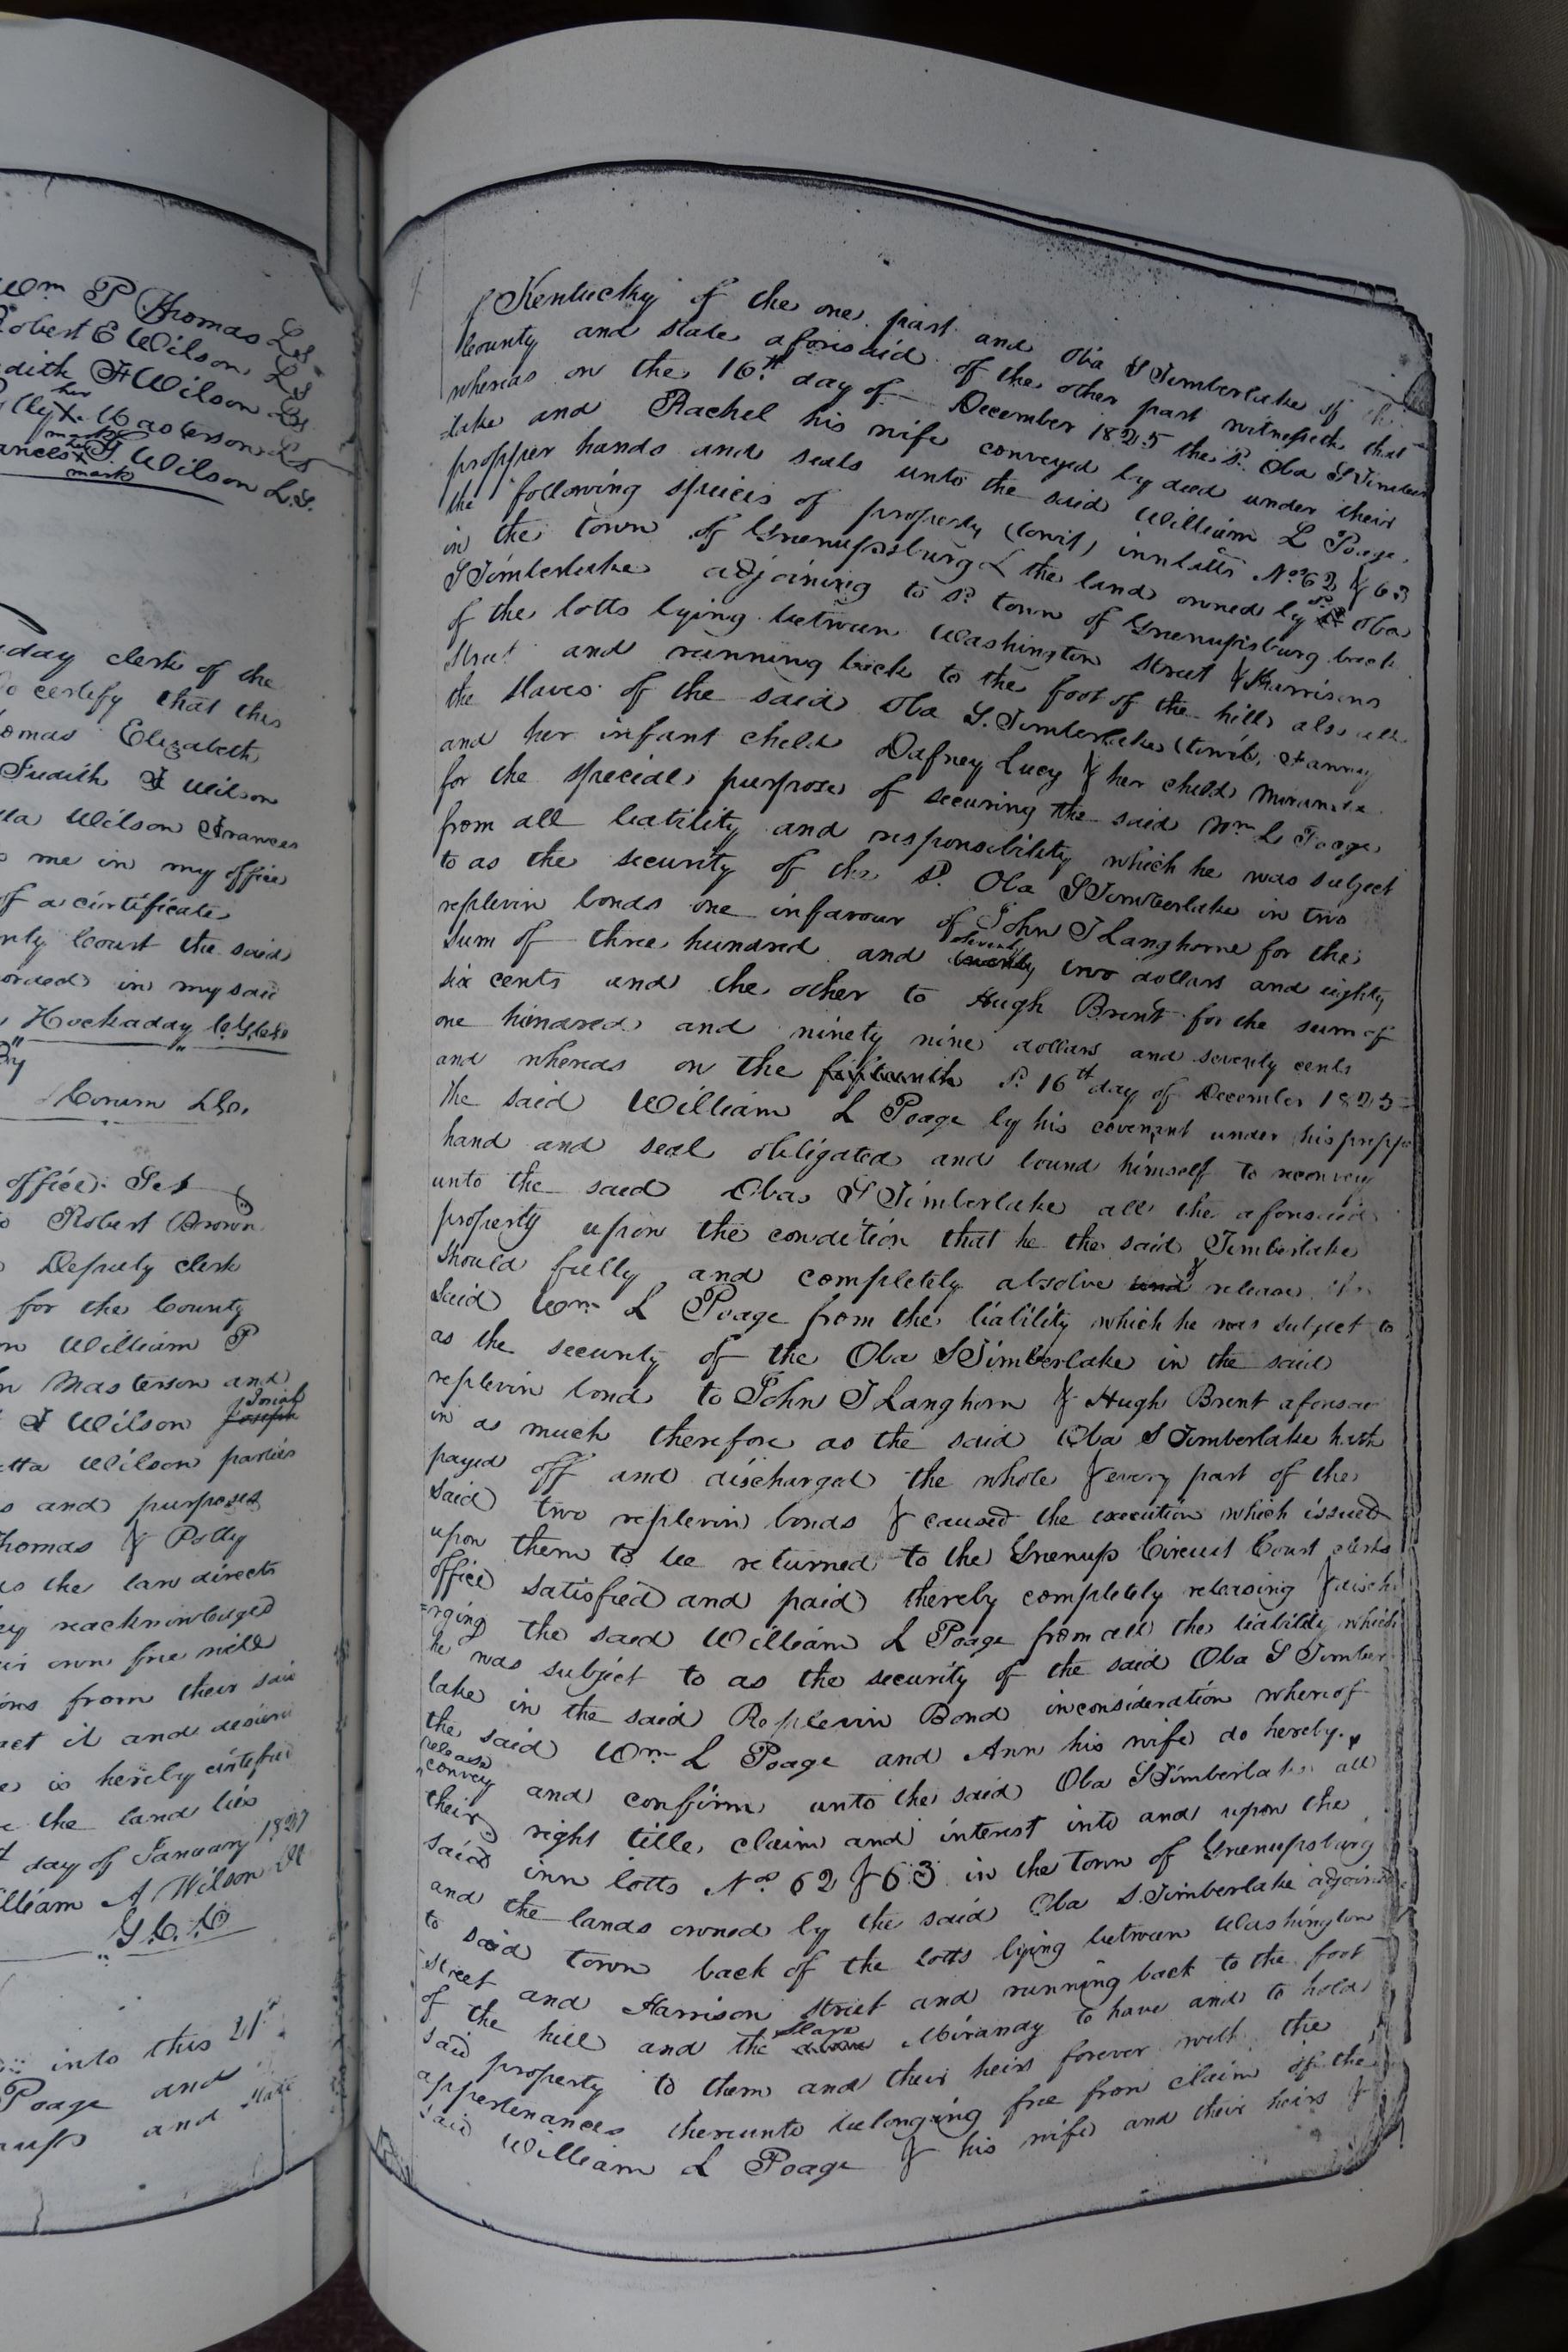 Wm P Thomas LS
Robert E Wilson LS
Judith F Wilson LS
her
Polly X Masterson LS
mark
her
Frances X F Wilson L.S.
mark
day clerk of the
do certify that this
Thomas Elizabeth
Judith F Wilson
Wilson Frances
me in my office
of a certificate
County Court the said
recorded in my said
Hockaday
Corum
office Set
to Robert Brown
Deputy clerk
for the County
William P
Masterson and
Josiah
F Wilson Joseph
Wilson parties
and purposes
Thomas & Polly
as the law directs
reacknowledged
own free will
from their said
act it and desired
is hereby certified
the land lies
day of January 1827
William A Wilson
G.C.C
into this 21st
Poage and
and State
Kentucky of the one part and Oba S Timberlake of the
County and state aforesaid of the other part witnesseth that
whereas on the 16th day of December 1825 the sd. Oba S Timber
lake and Rachel his wife conveyed by deed under their
propper hands and seals unto the said William L Poage
the following species of property (towit) innlotts Nos 62 & 63
in the town of Greenupsburg & the land owned by sd Oba
S Timberlake adjoining to sd. town of Greenupsburg back
of the lotts lying between Washington street & Harrisons
street and running back to the foot of the hill also all
the slaves of the said Oba S. Timberlake (towit, Fanny
and her infant child Dafney Lucy & her child Miranda
for the special purpose of securing the said Wm L Poage
from all liability and responsibility which he was subject
to as the security of the sd. Oba S Timberlake in two
replevin bonds one infavour of John T Langhorne for the
sum of three hundred and seventy two dollars and eighty
six cents and the other to Hugh Brent for the sum of
one hundred and ninety nine dollars and seventy cents
and whereas on the fifteenth sd. 16th day of December 1825
the said William L Poage by his covenant under his propper
hand and seal obligated and bound himself to reconvey
unto the said Oba S Timberlake all the aforesaid
property upon the condition that he the said Timberlake
should fully and completely absolve and & release the
said Wm L Poage from the liability which he was subject to
as the security of the Oba S Timberlake in the said
replevin bond to John T Langhorn & Hugh Brent aforesaid
in as much therefore as the said Oba S Timberlake hath
payed off and discharged the whole & every part of the
said two replevin bonds & caused the execution which issued
upon them to be returned to the Greenup Circuit Court clerks
office satisfied and paid thereby completely releasing & discha
=rging the said William L Poage from all the liability which
he was subject to as the security of the said Oba S Timber
lake in the said Replevin Bond inconsideration whereof
the said Wm L Poage and Ann his wife do hereby
release
convey and confirm unto the said Oba S Timberlake all
their right title claim and interest into and upon the
said inn lotts Nos 62 & 63 in the Town of Greenupsburg
and the lands owned by the said Oba S. Timberlake adjoining
to said town back of the lotts lying between Washington
street and Harrison street and running back to the foot
slave
of the hill and the Mirandy to have and to hold
said property to them and their heirs forever with the
appertenances thereunto belonging free from claim of the
said William L Poage & his wife and their heirs &